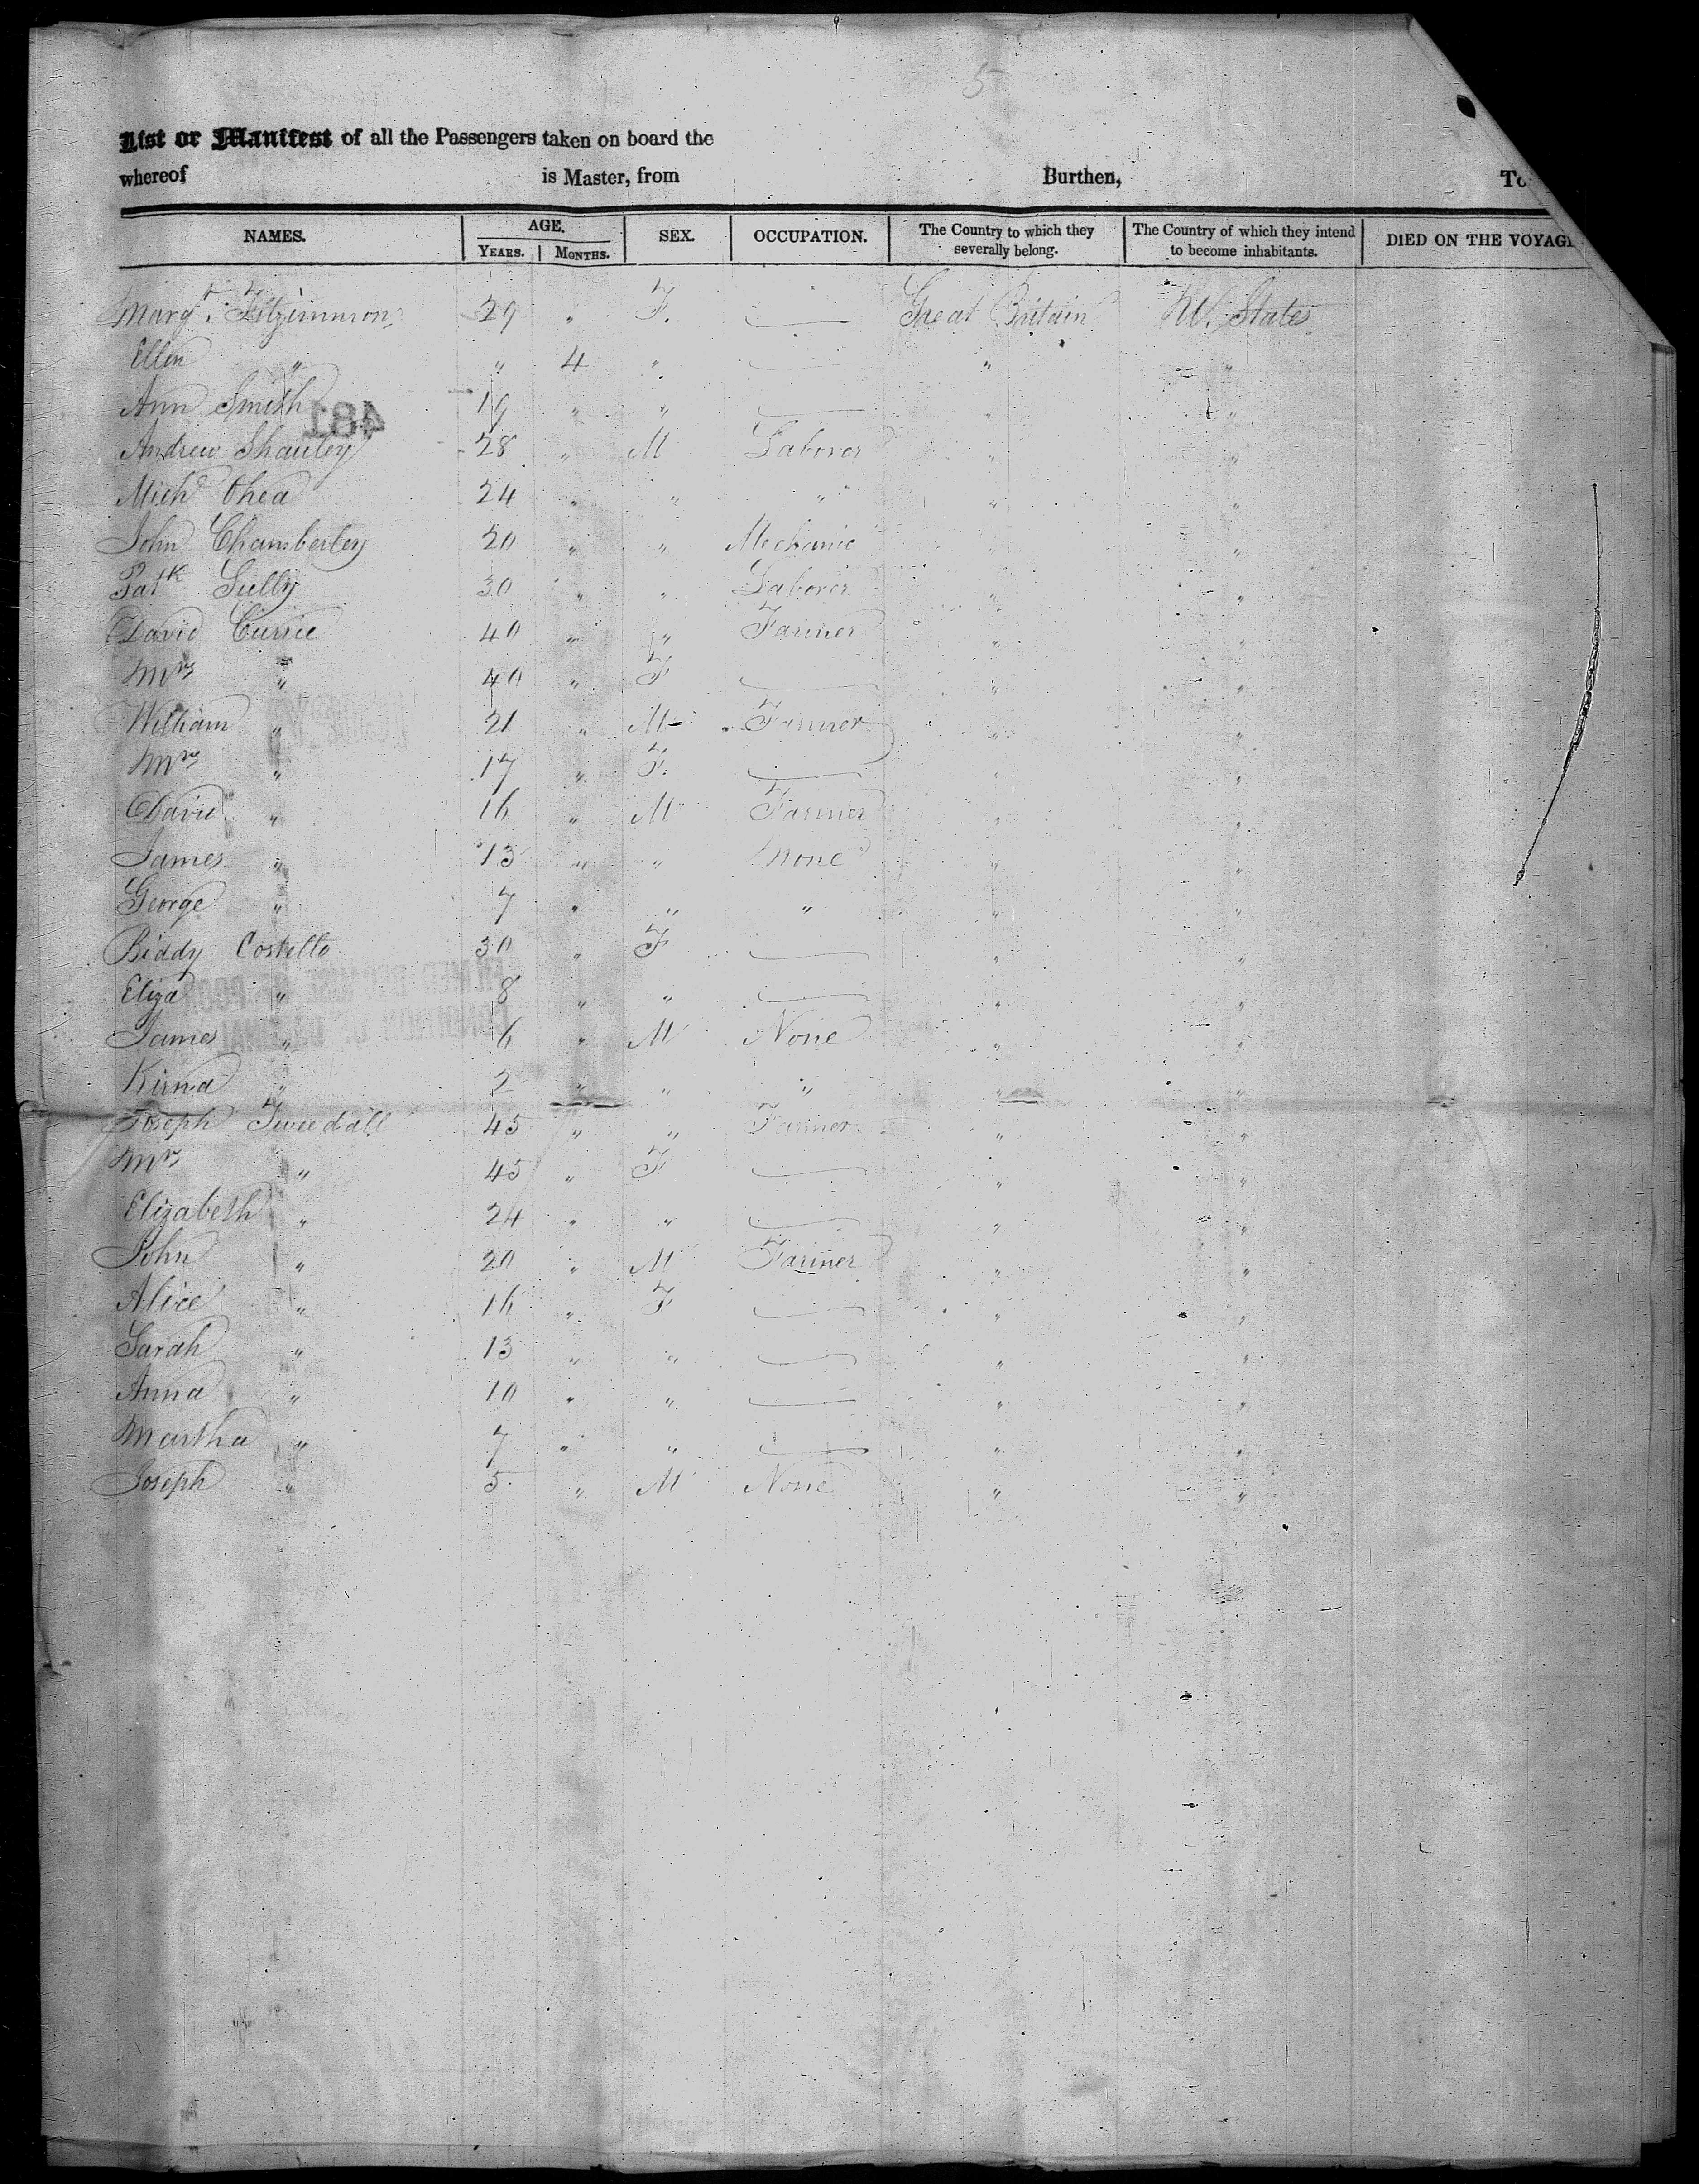 5
List or Manifest of all the Passengers taken on board the
whereof is Master, from Burthen, To
NAMES. AGE. SEX. OCCUPATION. The Country to which they severally belong. The Country of which they intend to become inhabitants. DIED ON THE VOYAGE
YEARS. MONTHS.
Margt. Fitzimmon 29 " F. — Great Britain U. States
Ellen " " 4 " — " "
Ann Smith 19 " " — " "
481
Andrew 28 " M Laborer " "
Michl Ohea 24 " " " " "
John Chamberley 20 " " Mechanic " "
Patk 30 " " Laborer " "
David Currie 40 " " Farmer " "
Mrs " 40 " F — " "
William " 21 " M Farmer " "
Mrs " 17 " F. — " "
David " 16 " M Farmer " "
James " 13 " " None " "
George " 7 " " " " "
Biddy Costello 30 " F — " "
Eliza " 8 " " — " "
James " 6 " M None " "
" 2 " " " " "
Joseph Tweedall 45 " " Farmer " "
Mrs " 45 " F — " "
Elizabeth " 24 " " — " "
John " 20 " M Farmer " "
Alice " 16 " F — " "
Sarah " 13 " " — " "
Anna " 10 " " — " "
Martha " 7 " " — " "
Joseph " 5 " M None " "